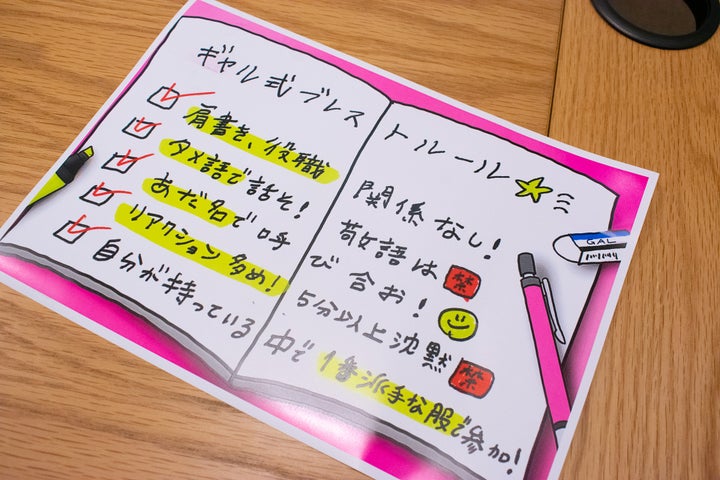 ギャル式ブレストルール
肩書き、役職関係なし!
タメ語で話そ!敬語は禁
あだ名で呼び合お!
リアクション多め!5分以上沈黙禁
自分が持っている中で1番派手な服で参加!
GAL